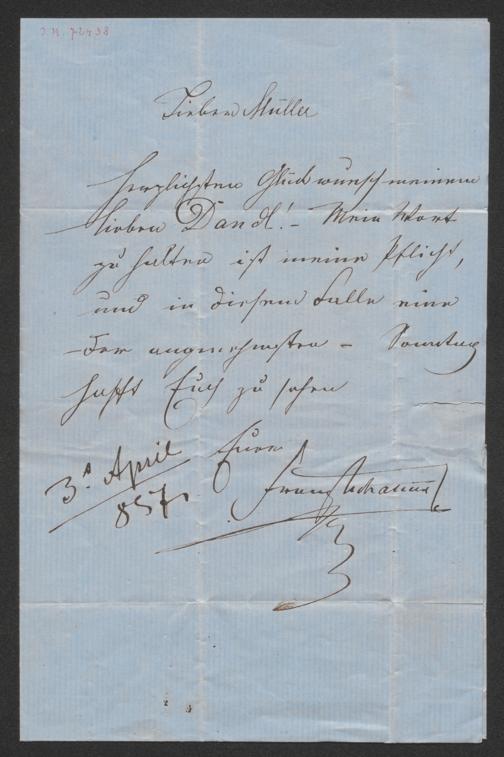 J.N. 72498
Lieber Müller
Herzlichsten Glückwunsch meinem
lieben Dandl! – Mein Wort
zu halten ist meine Pflicht,
und in diesem Falle eine
der angenehmsten – Sonntag
hofft Euch zu sehen
Euer
Franz
3t April
857